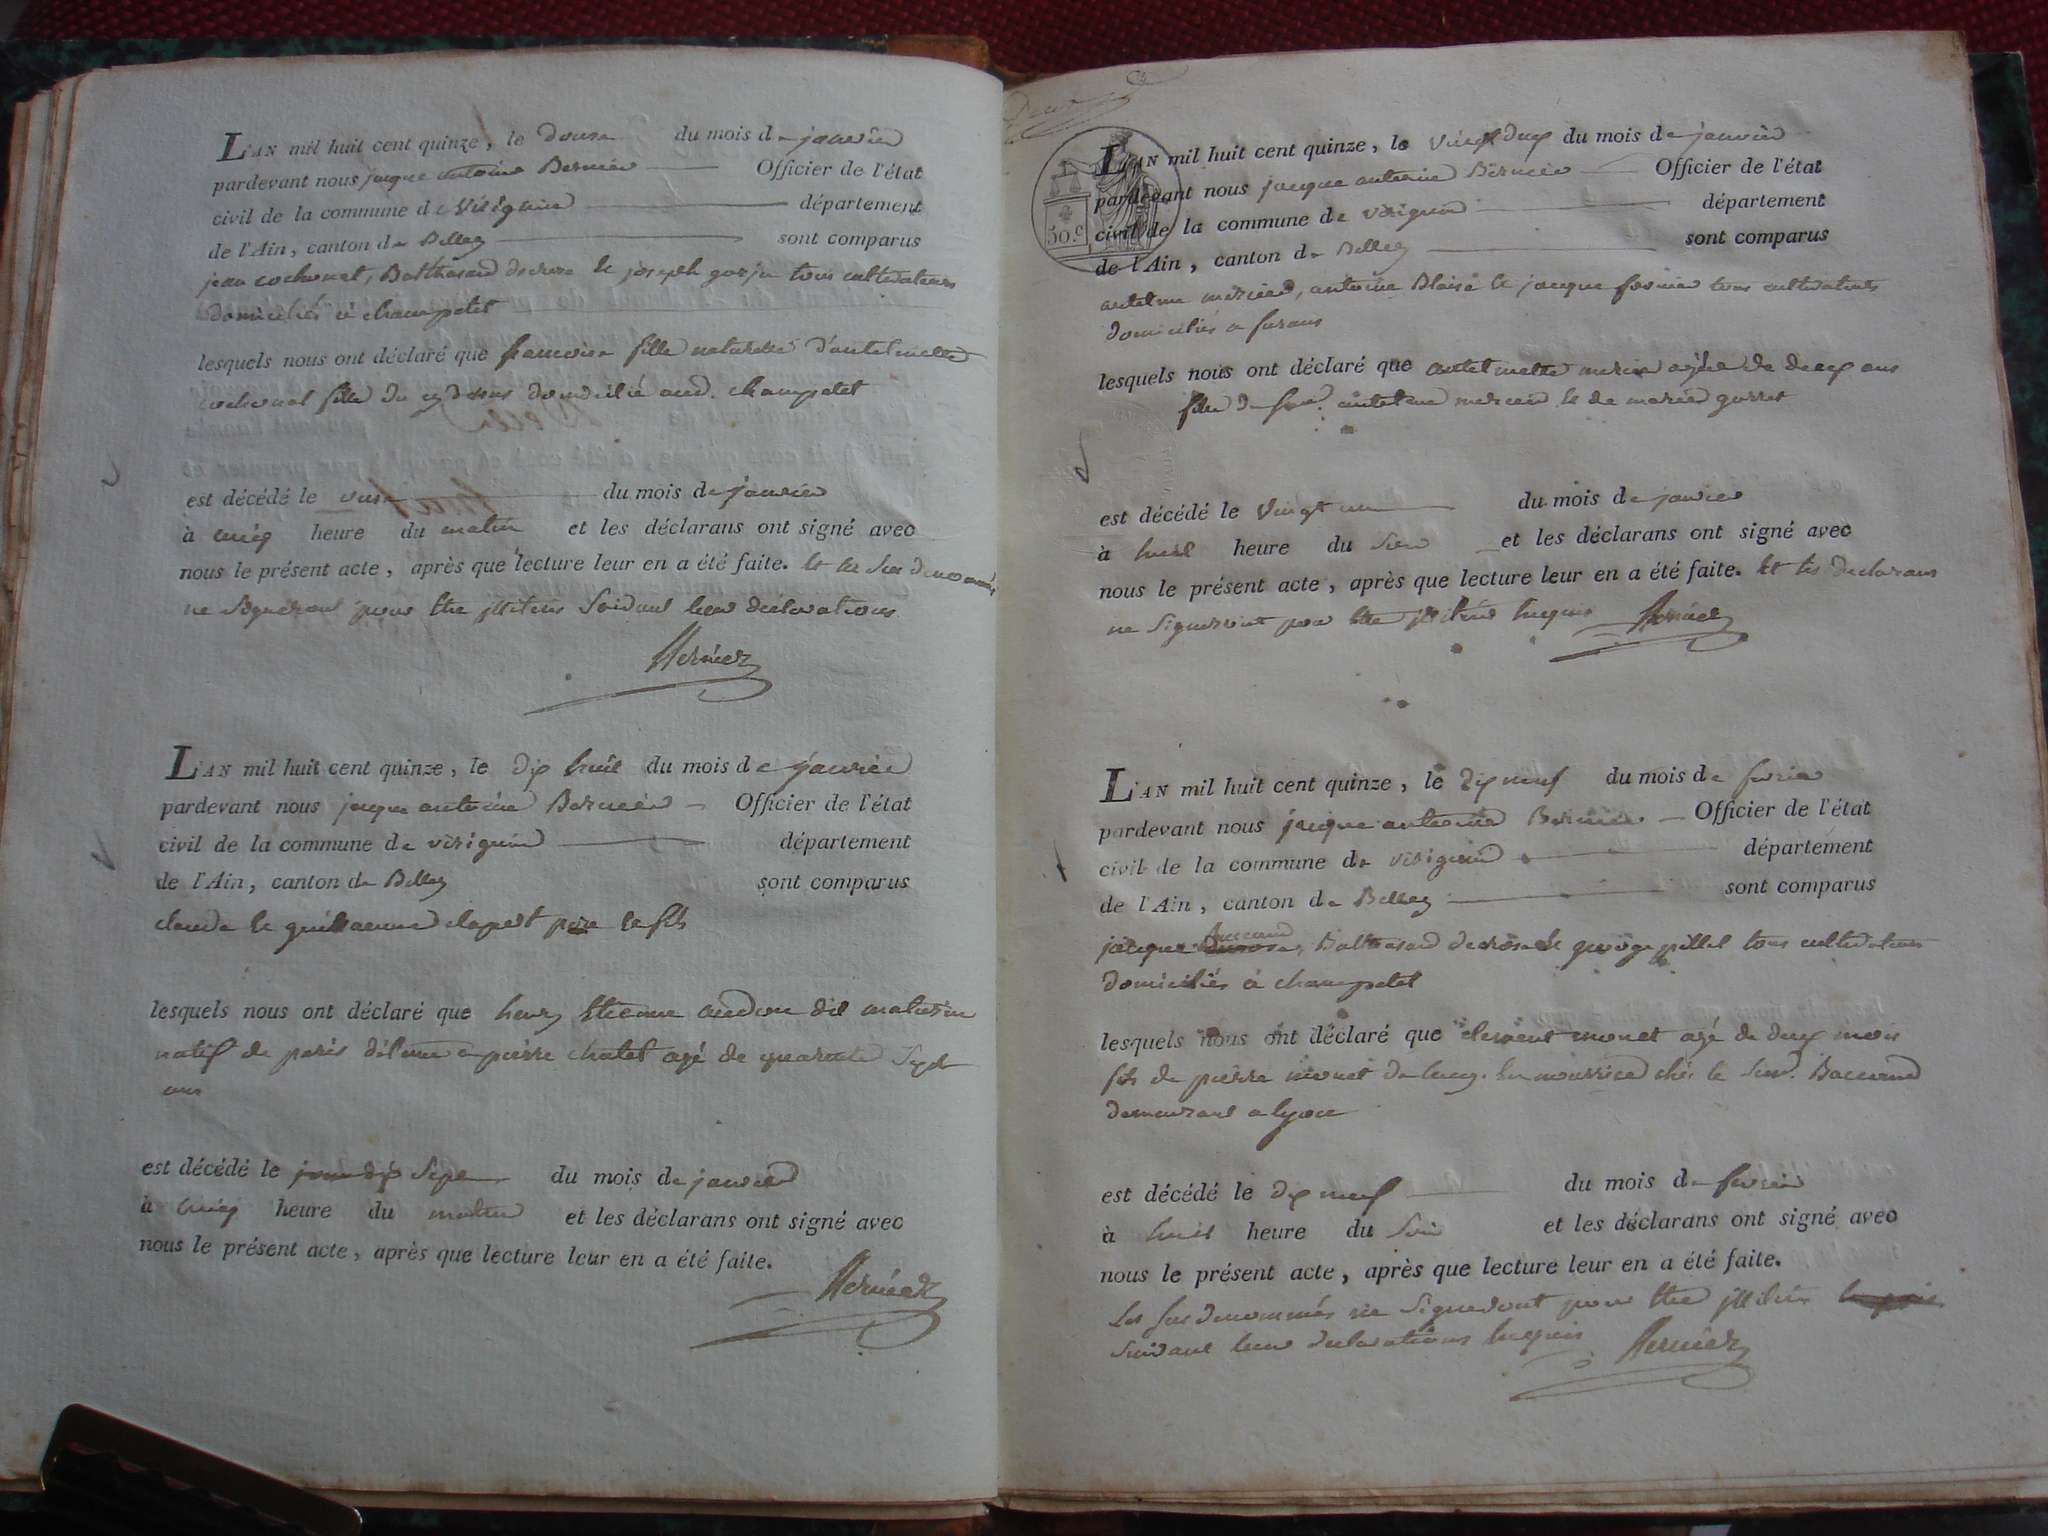 L'AN mil huit cent quinze, le douse du mois de janvier
pardevant nous jacque antoine Bernier Officier de l'état
civil de la commune de Virignin département
de l'Ain, canton de Belley sont comparus
jean cochonat, Balthasard et joseph gorju tous cultivateurs
domiciliés à champetel
lesquels nous ont déclaré que francoise fille naturelle d'antelmette
cochonat fille du cy dessus domicilié aud. champetel
est décédé le onse du mois de janvier
à cinq heure du matin et les déclarans ont signé avec
nous le présent acte, après que lecture leur en a été faite. et les sus denommés
ne signeront pour être illiterés suivant leur déclarations
Bernier
L'AN mil huit cent quinze, le dix huit du mois de janvier
pardevant nous jacque antoine Bernier Officier de l'état
civil de la commune de virignin département
de l'Ain, canton de Belley sont comparus
claude et guillaume clapert père et fils
lesquels nous ont déclaré que henry Etienne dit maturin
natif de paris détenu a pierre chatel agé de quarante sept
ans
est décédé le dix sept du mois de janvier
à cinq heure du matin et les déclarans ont signé avec
nous le présent acte, après que lecture leur en a été faite.
Bernier
50.c
L'AN mil huit cent quinze, le vingt deux du mois de janvier
pardevant nous jacque antoine Bernier Officier de l'état
civil de la commune de virignin département
de l'Ain, canton de Belley sont comparus
antelme mercier, antoine Blaise et jacque tous cultivateurs
domiciliés a
lesquels nous ont déclaré que antelmette mercier agée de deux ans
fille de feu antelme mercier et de marie
est décédé le vingt un du mois de janvier
à huit heure du soir et les déclarans ont signé avec
nous le présent acte, après que lecture leur en a été faite. et les declarans
ne signeront pour être illiterés requis Bernier
L'AN mil huit cent quinze, le dix neuf du mois de fevrier
pardevant nous jacque antoine Bernier Officier de l'état
civil de la commune de virignin département
de l'Ain, canton de Belley sont comparus
jacque Baccand, Balthasard et george pillet tous cultivateurs
domiciliés à champetel
lesquels nous ont déclaré que clement monet agé de deux mois
fils de pierre monet de en nourrice chés le Baccand
demeurant a lyon
est décédé le dix neuf du mois de fevrier
à huit heure du soir et les déclarans ont signé avec
nous le présent acte, après que lecture leur en a été faite.
Les sus denommés ne signeront pour être illiterés
suivant leur declarations requis Bernier